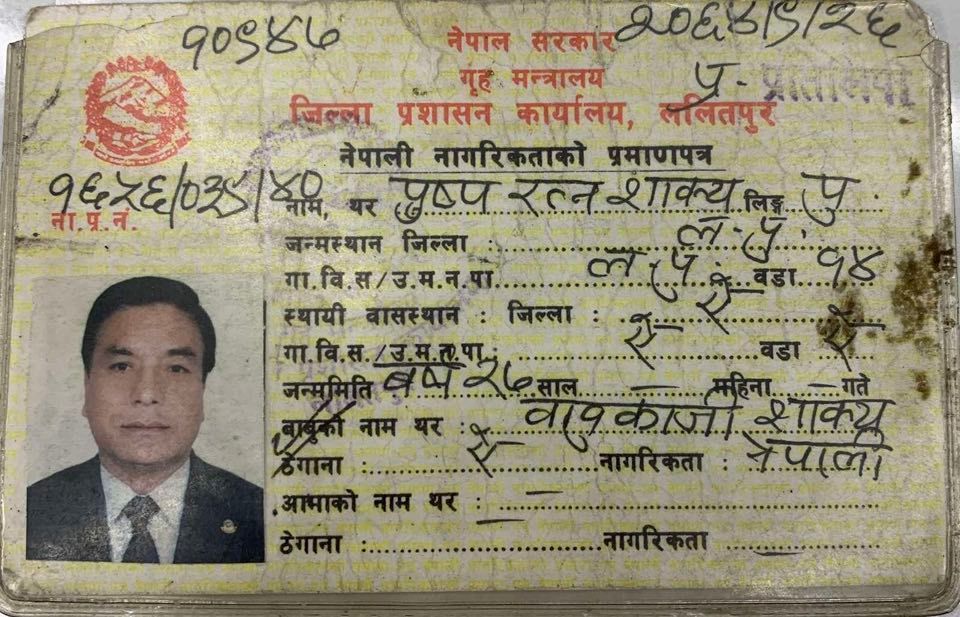 १०९४७ २०६४/९/२६
नेपाल सरकार
गृह मन्त्रालय प्र. प्रतिलिपी
जिल्ला प्रशासन कार्यालय, ललितपुर
नेपाली नागरिकताको प्रमाणपत्र
१६५६/०३९/४०
ना.प्र.नं.
नाम, थर पुष्प रत्न शाक्य लिङ्ग पु
जन्मस्थान जिल्ला : ल.पु.
गा.वि.स/उ.म.न.पा. ल.पु. वडा १४
स्थायी वासस्थान : जिल्ला : ऐ
गा.वि.स./उ.म.न.पा: ऐ वडा ऐ
जन्ममिति वर्ष २७ साल — महिना — गते
बाबुको नाम थर : बाबुकाजी शाक्य
ठेगाना : ऐ नागरिकता : नेपाली
आमाको नाम थर : —
ठेगाना : — नागरिकता